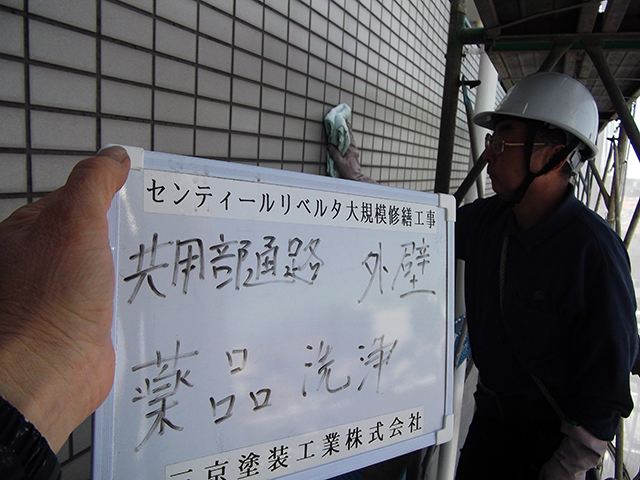 センティールリベルタ大規模修繕工事
共用部通路 外壁
薬品洗浄
三京塗装工業株式会社